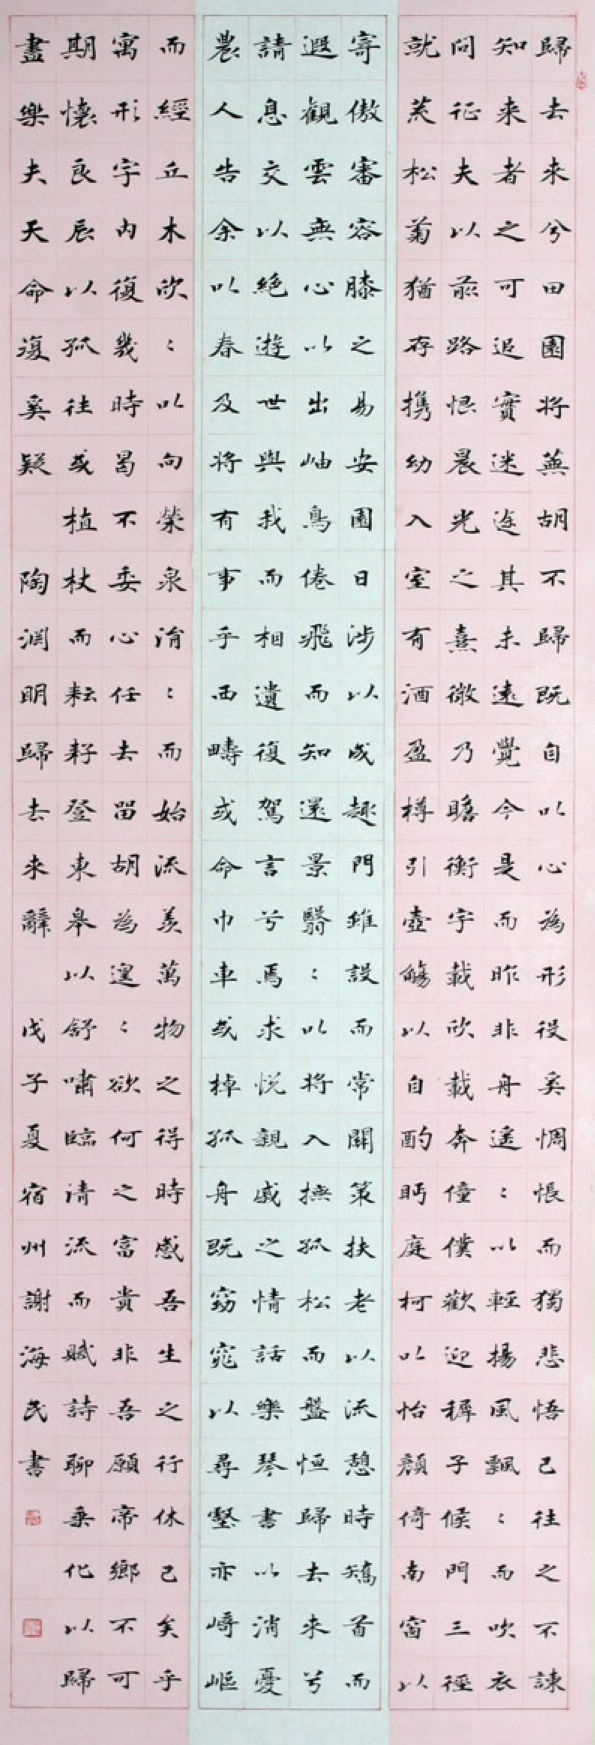 歸去来兮田園將蕪胡不歸既自以心為形役奚惆悵而獨悲悟已往之不諫
知来者之可追實迷途其未遠覺今是而昨非舟遙:以輕揚風飄:而吹衣
問征夫以前路恨晨光之熹微乃瞻衡宇載欣載奔僮僕歡迎稺子候門三徑
就荒松菊猶存携幼入室有酒盈樽引壺觴以自酌眄庭柯以怡顏倚南窗以
寄傲審容膝之易安園日涉以成趣門雖設而常關策扶老以流憩時矯首而
遐觀雲無心以出岫鳥倦飛而知還景翳:以將入撫孤松而盤恒歸去来兮
請息交以絕遊世與我而相遺復駕言兮焉求悦親戚之情話樂琴書以消憂
農人告余以春及將有事乎西疇或命巾車或棹孤舟既窈窕以尋壑亦崎嶇
而經丘木欣:以向榮泉涓:而始流羨萬物之得時感吾生之行休已矣乎
寓形宇内復幾時曷不委心任去留胡為遑:欲何之富貴非吾願帝鄉不可
期懷良辰以孤往或植杖而耘耔登東皋以舒嘯臨清流而賦詩聊乘化以歸
盡樂夫天命復奚疑 陶淵明歸去来辭 戊子夏宿州謝海民書